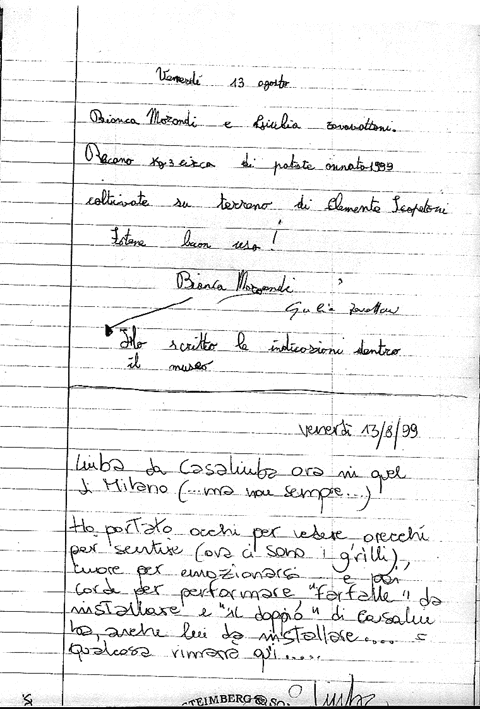 Venerdí 13 agosto
Bianca Morandi e Giulia Zavattoni.
Recano kg 3 circa di patate annata 1999
coltivate su terreno di Clemente
buon uso!
Bianca Morandi
Giulia
Ho scritto le indicazioni dentro
il museo
venerdì 13/8/99
da Casaliuba ora in quel
di Milano (...ma non sempre...)
Ho portato occhi per vedere, orecchi
per sentire (ora ci sono i grilli),
cuore per emozionarsi e poi
corde per performare "farfalle" da
installare e "il doppio" di Casaliu
ba, anche lui da installare....
qualcosa rimarrà qui.....
STEIMBERG